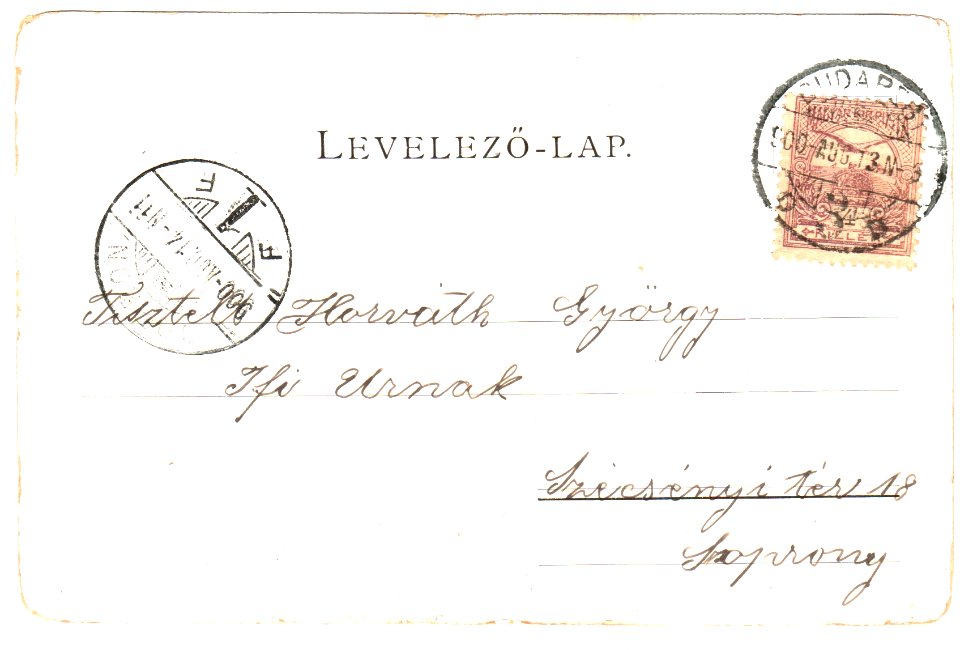 LEVELEZŐ-LAP.
BUDAPEST
900-AUG. 13. N-3
MAGYAR KIR. POSTA
4
Tisztelt Horváth György
Ifi Urnak
Szécsényi tér 18
Soprony